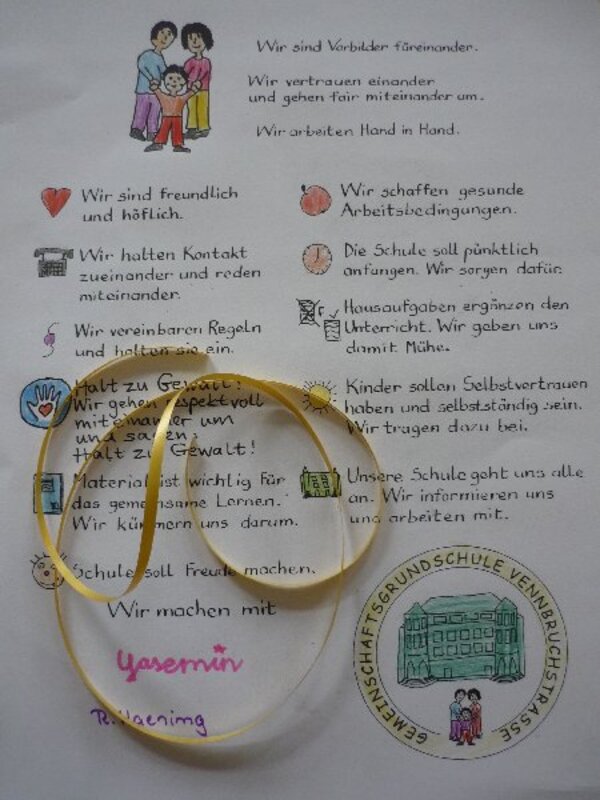 Wir sind Vorbilder füreinander.
Wir vertrauen einander
und gehen fair miteinander um.
Wir arbeiten Hand in Hand.
Wir sind freundlich
und höflich.
Wir halten Kontakt
zueinander und reden
miteinander.
Wir vereinbaren Regeln
und halten sie ein.
Halt zu Gewalt!
Wir gehen respektvoll
miteinander um
und sagen:
Halt zu Gewalt!
Material ist wichtig für
das gemeinsame Lernen.
Wir kümmern uns darum.
Schule soll Freude machen.
Wir schaffen gesunde
Arbeitsbedingungen.
Die Schule soll pünktlich
anfangen. Wir sorgen dafür.
Hausaufgaben ergänzen den
Unterricht. Wir geben uns
damit Mühe.
Kinder sollen Selbstvertrauen
haben und selbstständig sein.
Wir tragen dazu bei.
Unsere Schule geht uns alle
an. Wir informieren uns
und arbeiten mit.
Wir machen mit
Yasemin
R. Haening
GEMEINSCHAFTSGRUNDSCHULE VENNBRUCHSTRASSE